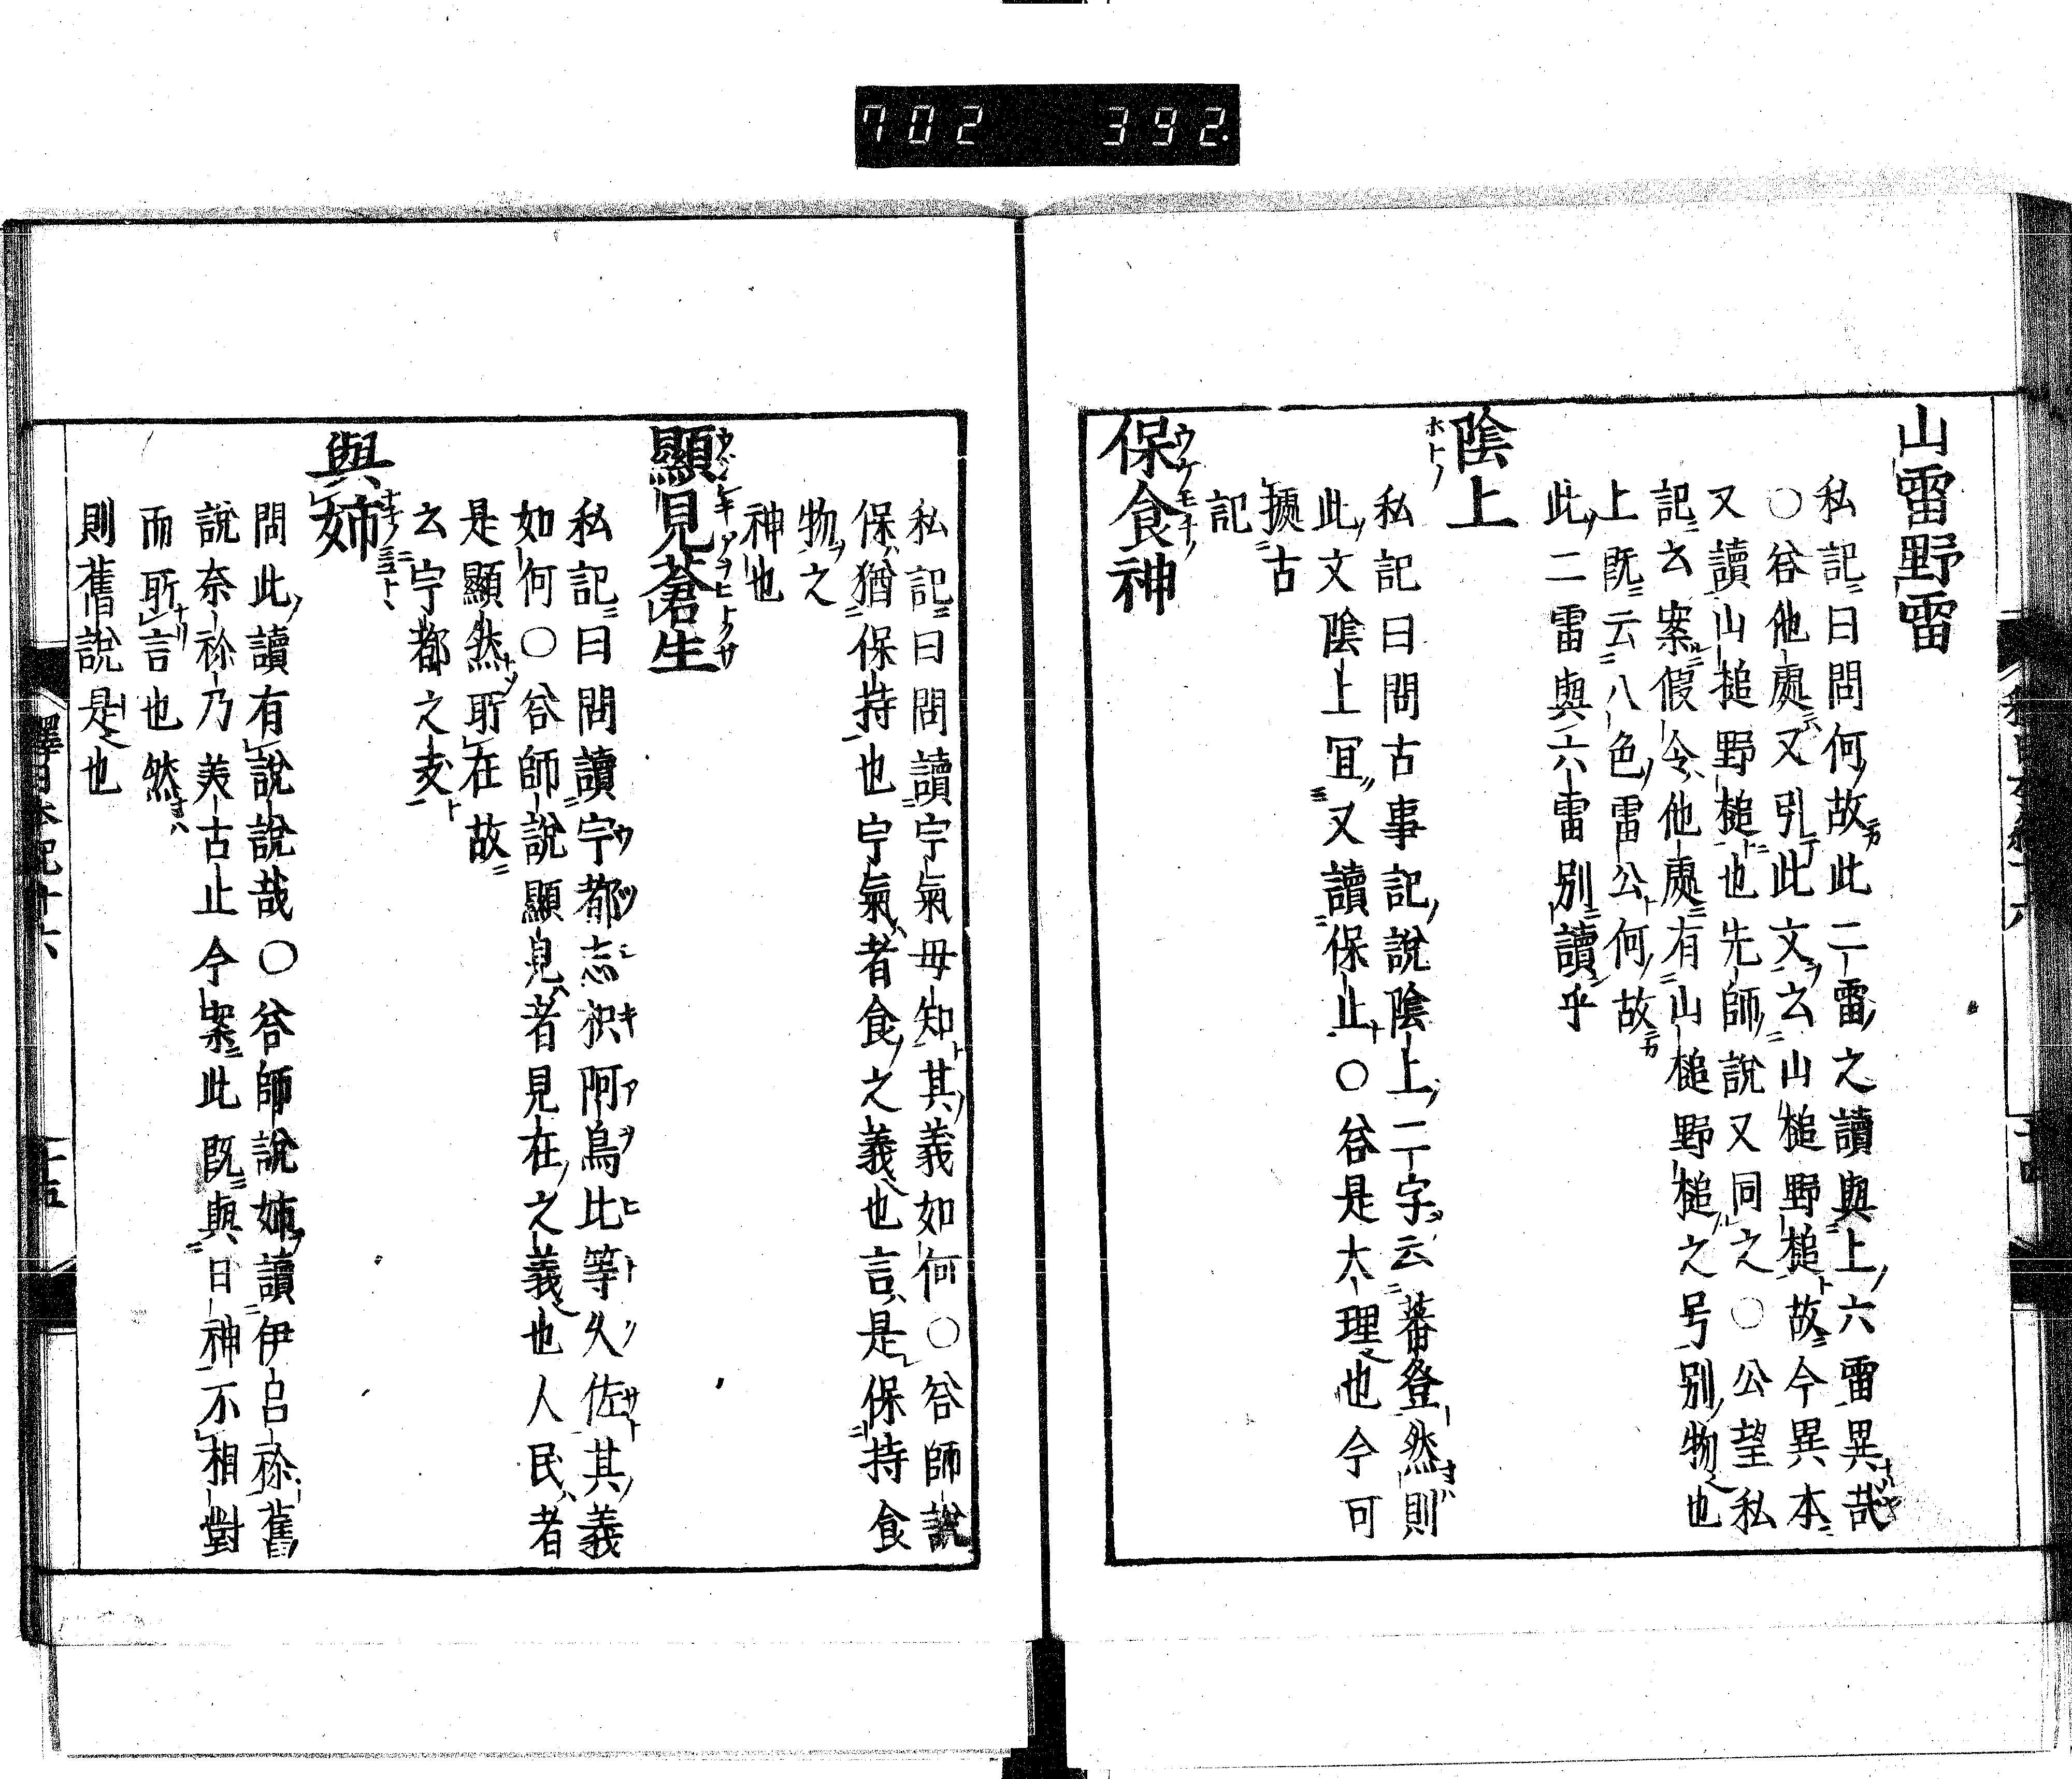 702 392
山雷野雷
私記曰問何故此二雷之讀與上六雷異哉
○答他處又引此文云山槌野槌故今異本
又讀山槌野槌也先師說又同之○公望私
記云案假令他處有山槌野槌之号別物也
上既云八色雷公何故
此二雷與六雷別讀乎
陰上
ホトノ
私記曰問古事記說陰上二字云蕃登然則
此文陰上冝又讀保止○答是大理也今可
損古
記
保食神
ウケモチノ
私記曰問讀宇氣毋知其義如何○答師說
保猶保持也宇氣者食之義也言是保持食
物之
神也
顯見蒼生
ウツシキアヲヒトクサ
私記曰問讀宇都志枳阿烏比等久佐其義
如何○答師說顯見者見在之義也人民者
是顯然所在故
云宇都之支
與姉
問此讀有說說哉○答師說姉讀伊呂祢舊
說奈祢乃美古止今案此既與日神不相對
而所言也然
則舊說是也
釋日本紀十六
十五